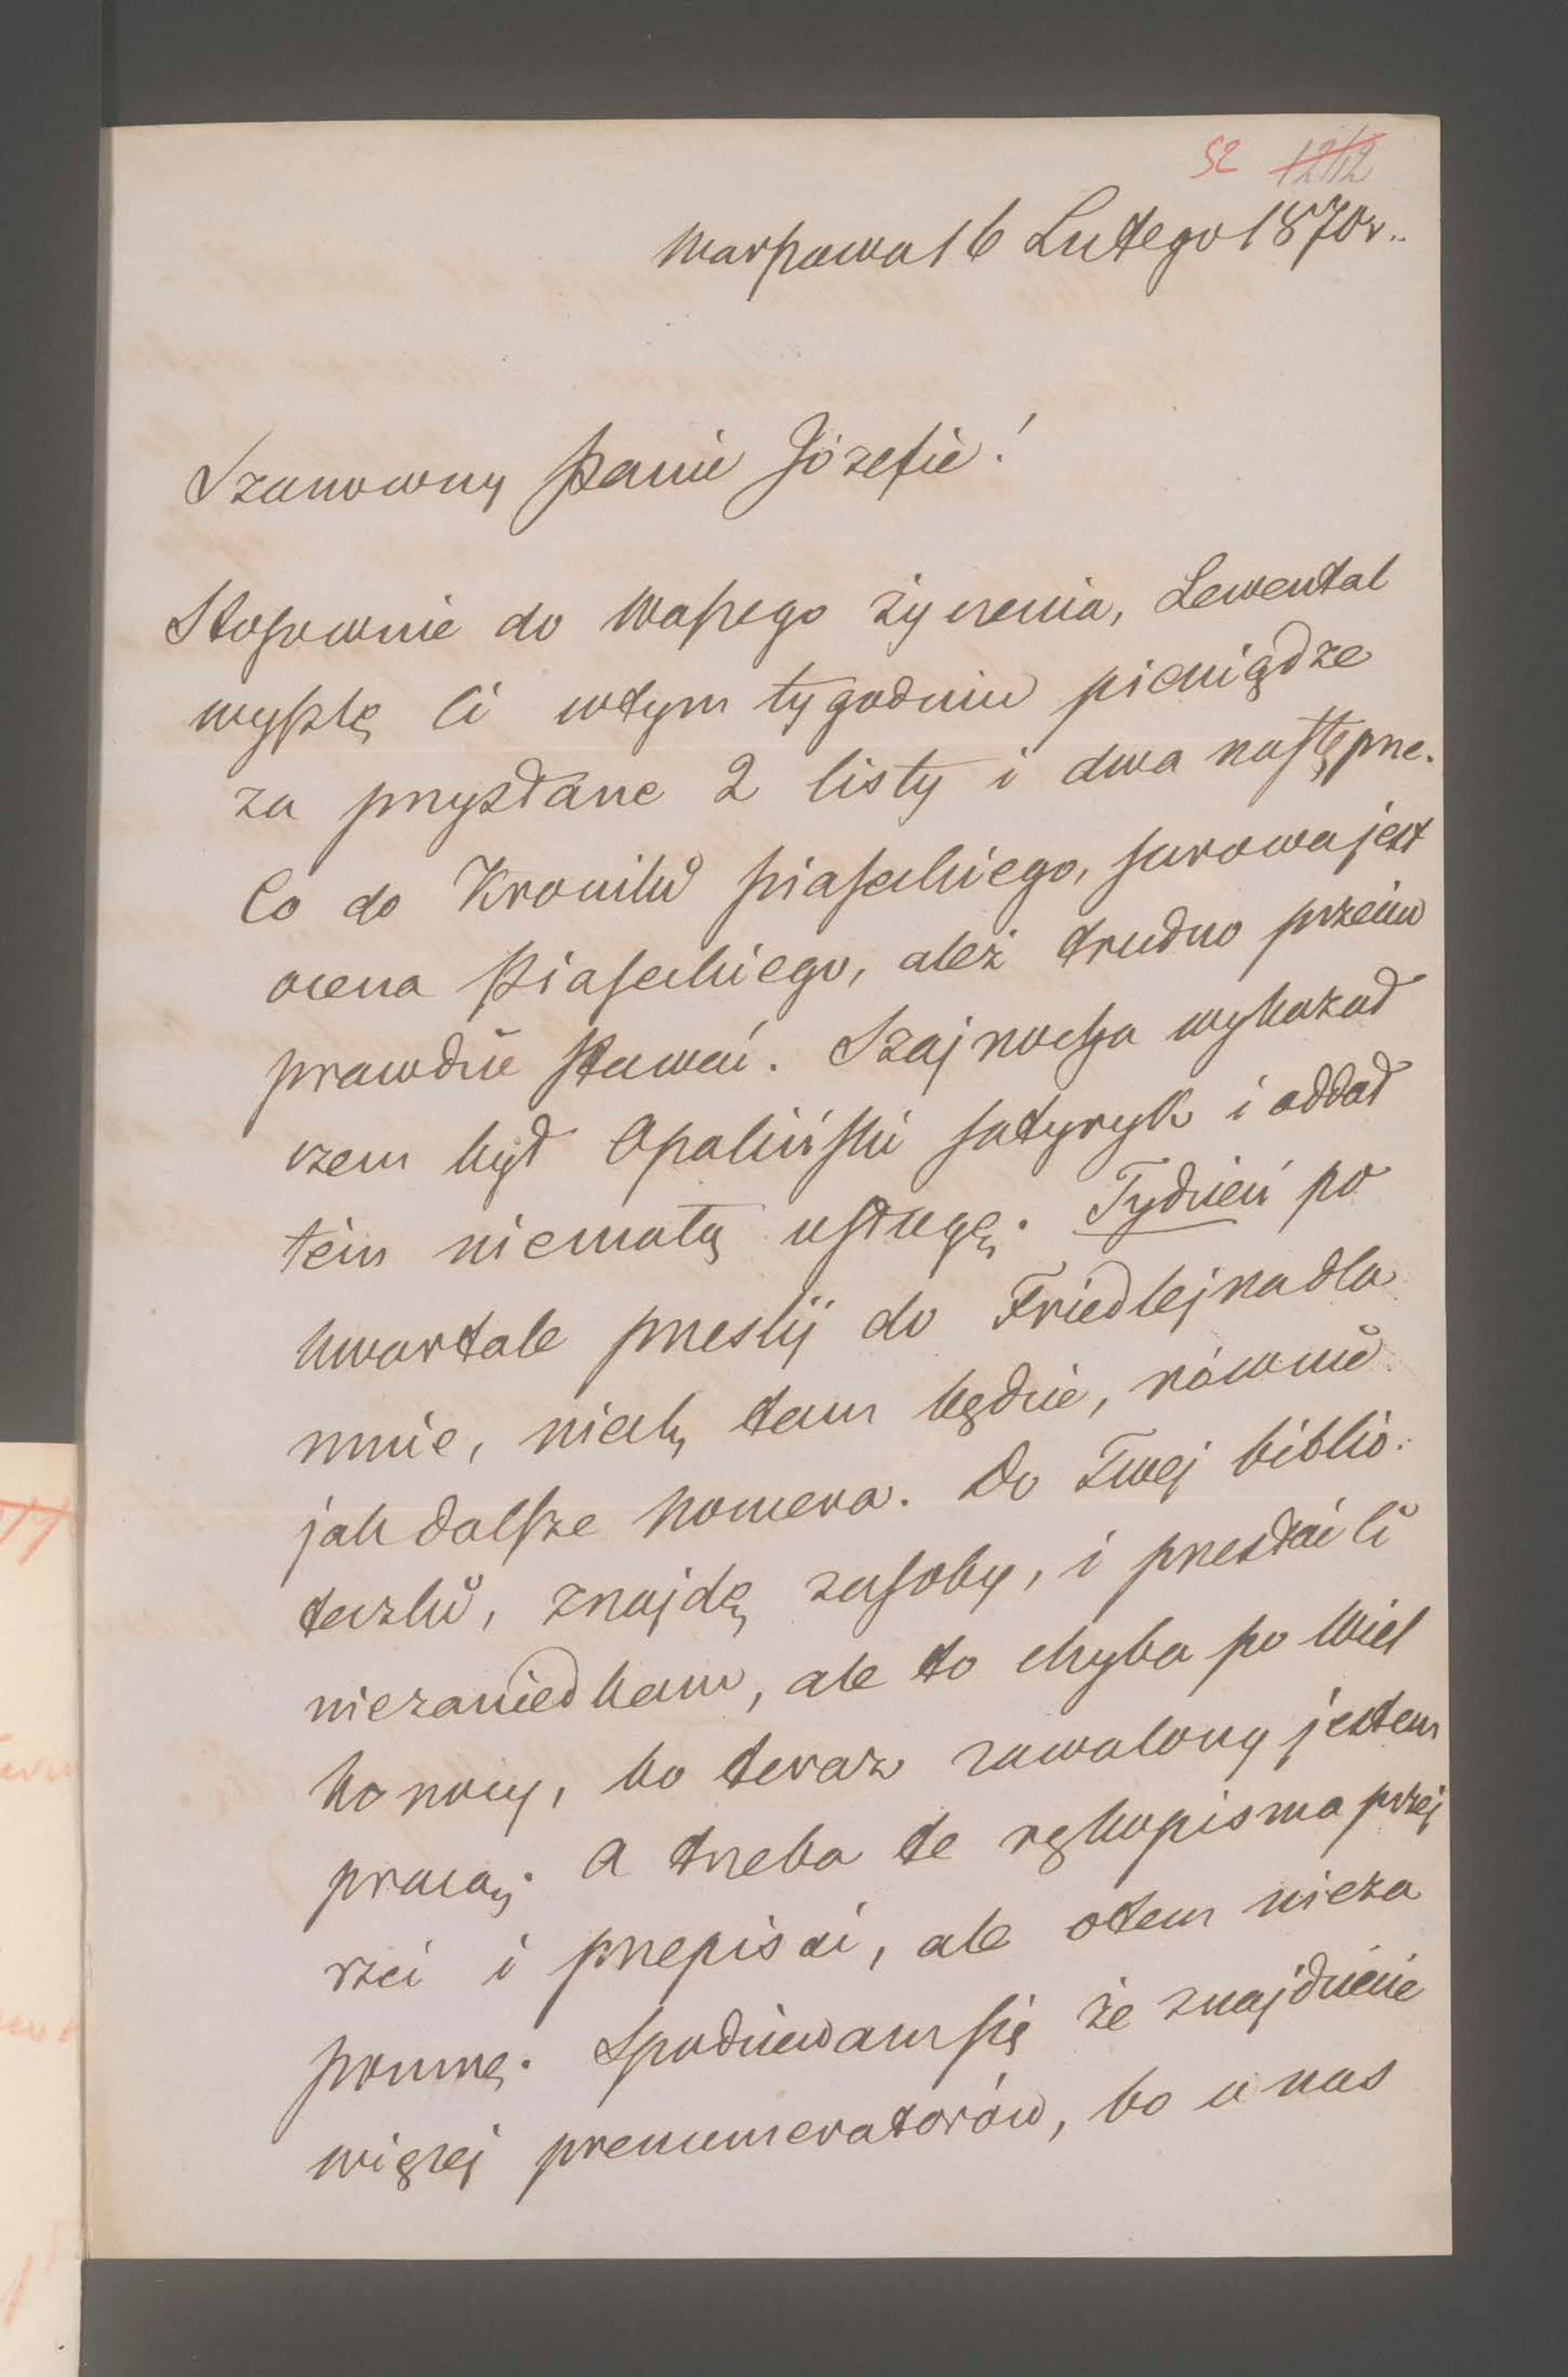 52 1212
Warszawa 16 Lutego 1870 r.
Szanowny Panie Józefie!
Stosownie do Waszego życzenia, Lewental
wyszle Ci wtym tygodniu pieniądze
za przysłane 2 listy i dwa następne.
Co do Kroniki Piaseckiego, surowa jest
ocena Piaseckiego, aleź trudno przeciw
prawdzie stawać. Szajnocha wykazał
czem był Opaliński satyryk i oddał
tém niemałą usługę. Tydzień po
kwartale prześlij do Friedlejna dla
mnie, niech tam będzie, równie
jak dalsze nomera. Do Twej biblio-
teczki, znajdę zasoby, i przesłać Ci
niezaniedbam, ale to chyba po Wiel
konocy, bo teraz zawalony jestem
pracą. A trzeba te rękopisma przej
rzeć i przepisać, ale otem nieza
pomnę. Spodziewam się że znajdziecie
więcej prenumeratorów, bo u nas